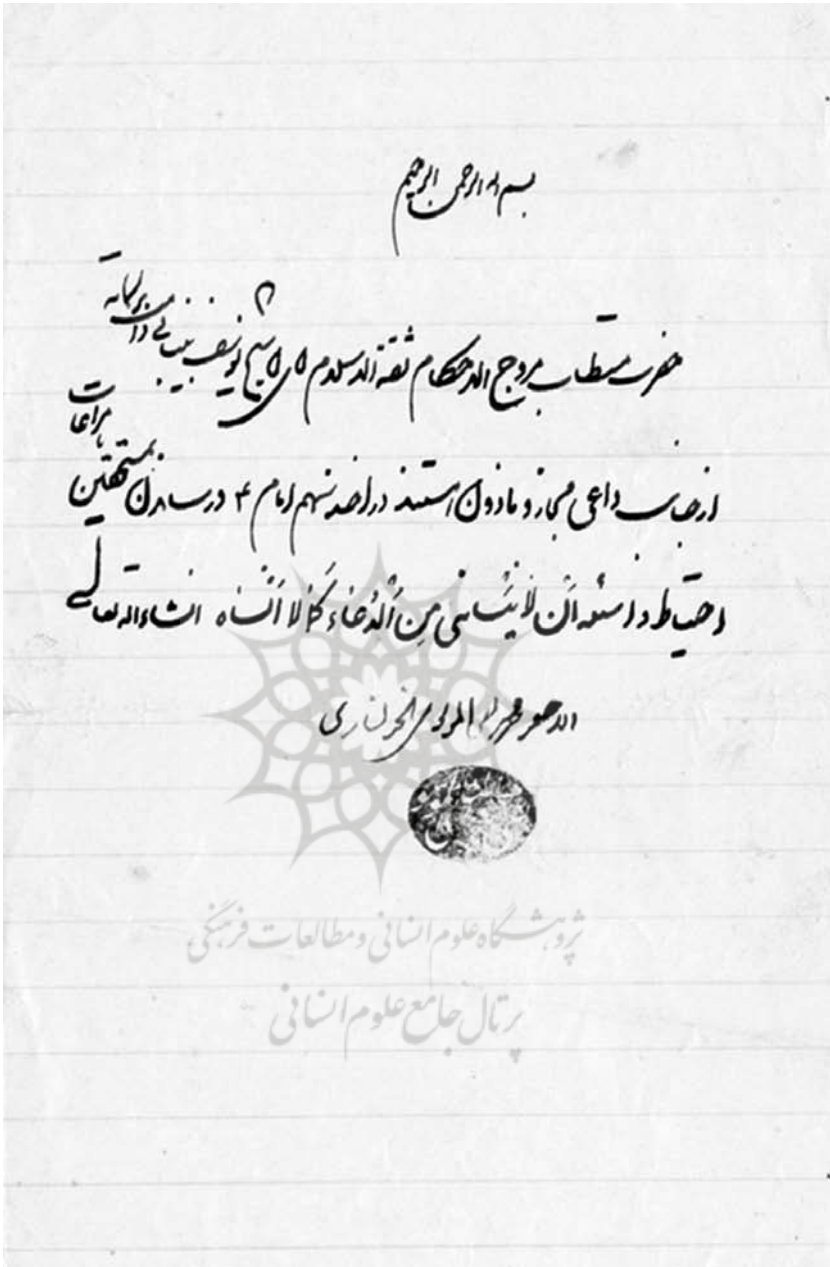 بسم الله الرحمن الرحیم
حضرت مستطاب مروج الاحکام ثقة الاسلام آقای آشیخ یوسف دامت برکاته
از جانب داعی مجاز و مأذون هستند در اخذ سهم امام ع و رساندن بمستحقین با مراعات
احتیاط و اسئله اَنْ لا یَنْسانی مِنَ الْدُعاء کَمٰا لا اَنْساه انشاءالله تعالی
الاحقر الموسوی الخونساری
پژوهشگاه علوم انسانی و مطالعات فرهنگی
پرتال جامع علوم انسانی